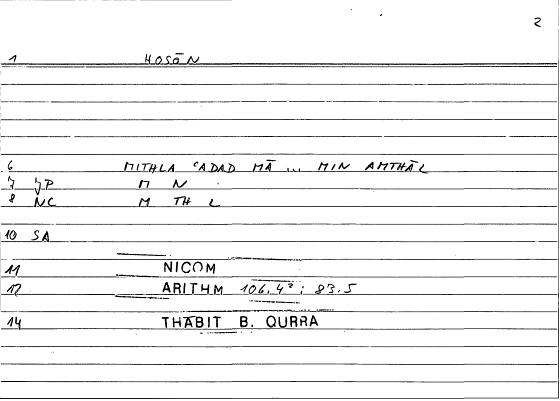 2
1 HOSŌN
6 MITHLA ʿADAD MĀ ... MIN AMTHĀL
7 JP M N
8 NC M TH L
10 SA
11 NICOM
12 ARITHM 106.4² ; 83.5
14 THĀBIT B. QURRA